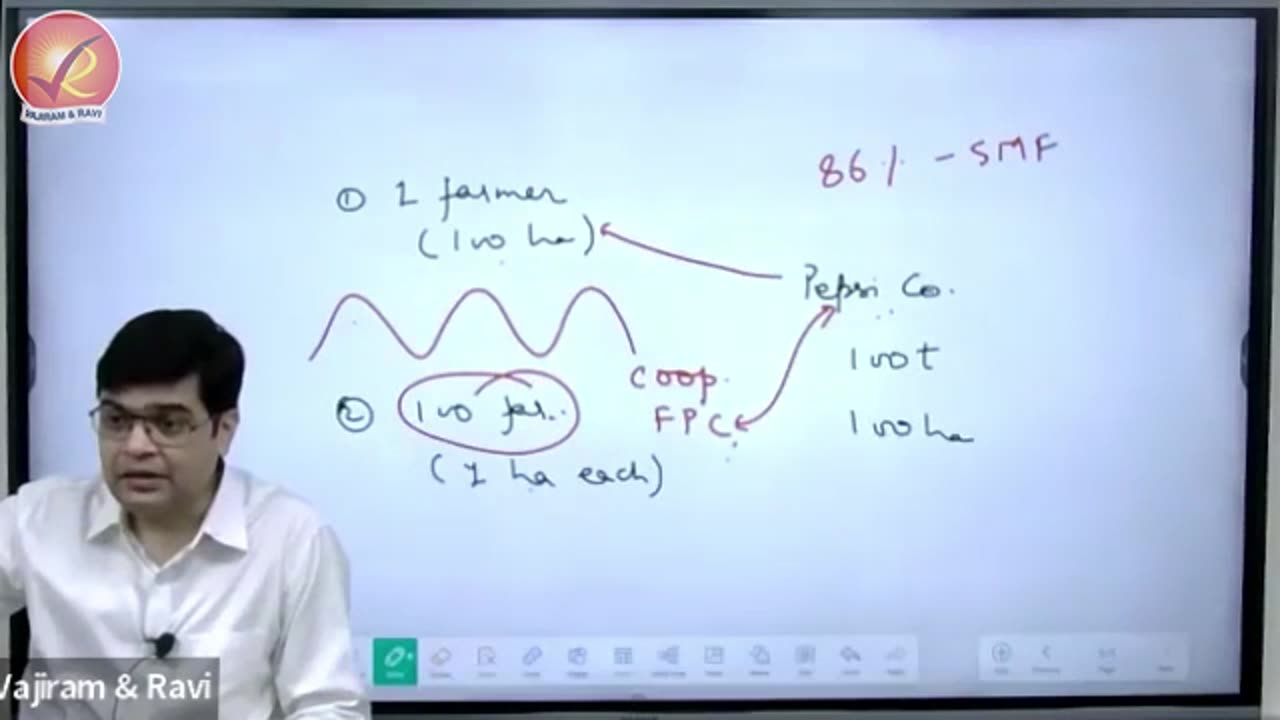 VAJIRAM & RAVI
86% - SMF
① 1 farmer
(100 ha)
Pepsi Co.
100 t
100 ha
Coop.
FPC
② 100 far..
(1 ha each)
Vajiram & Ravi